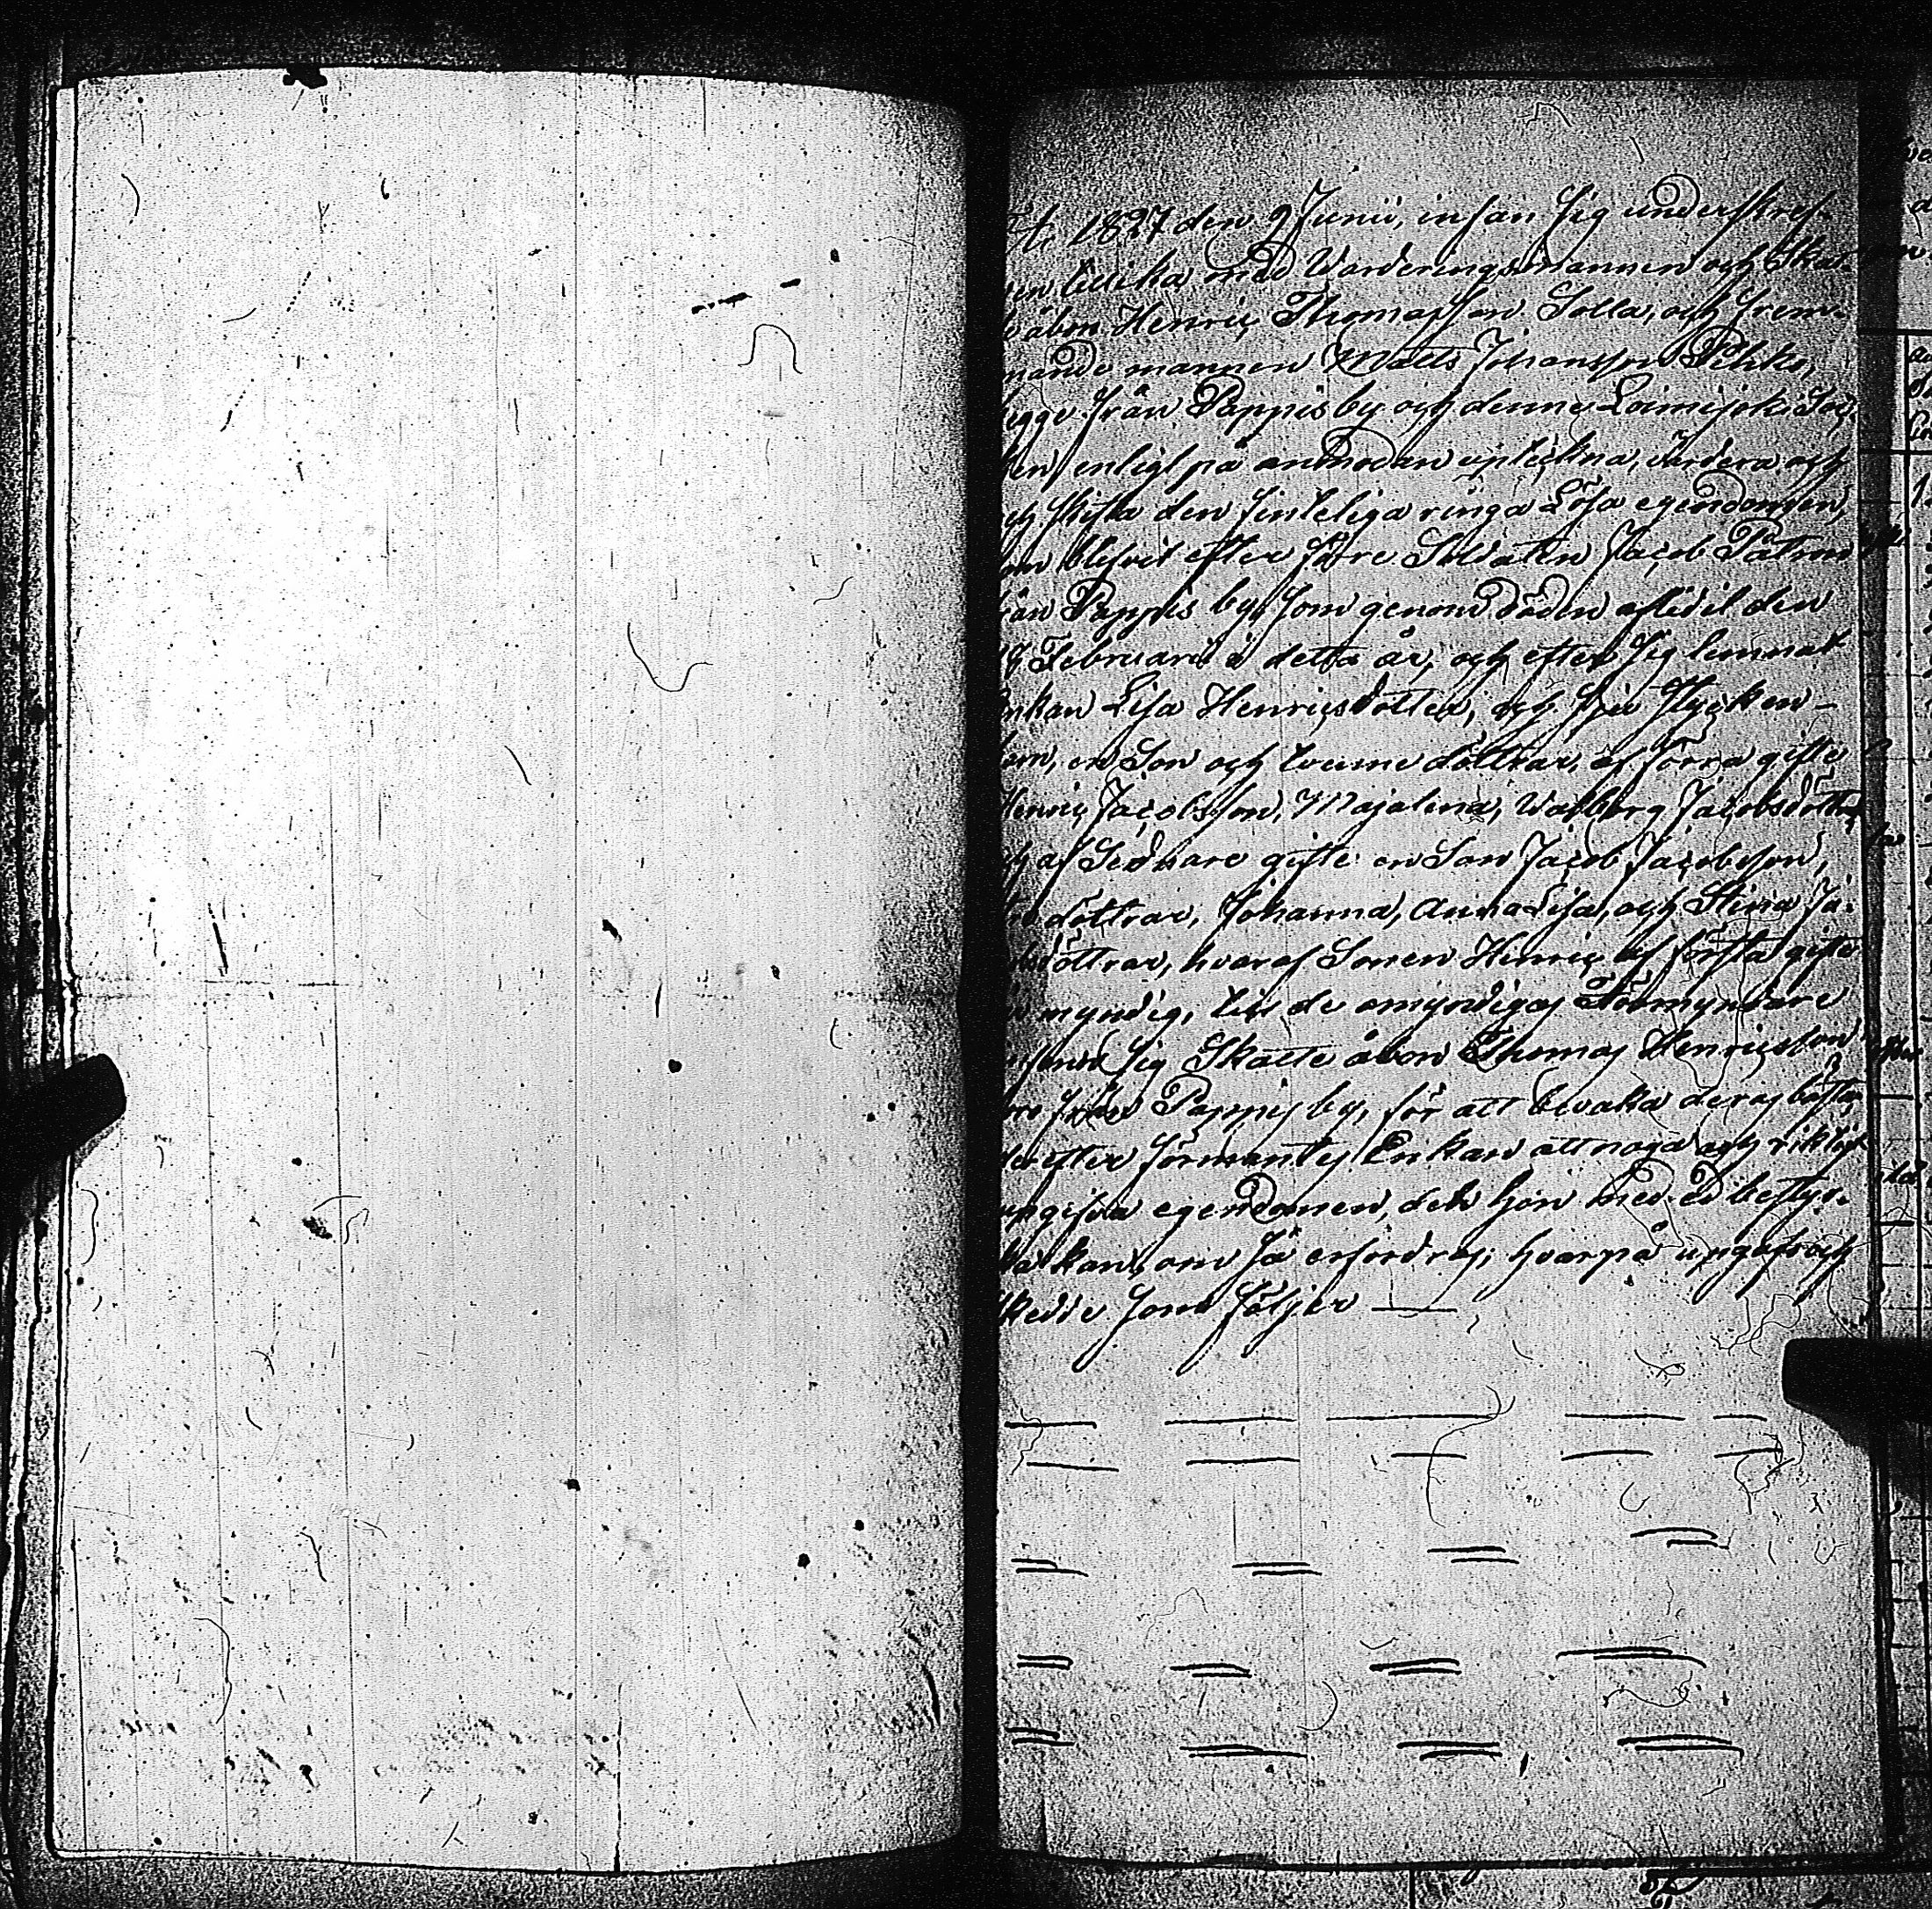 År 1827 den 9 Junii, infan sig underskref-
en tillika med Värderingsmannen och Skat-
åbon Henric Thomasson Solla, och Frem-
nande mannen Matts Johansson Pihko,
egge från Pappis by och denne Loimijoki Soc-
ken, enligt på anmodan upteckna, värdera och
och skifta den finteliga ringa Lösa egendomen,
om blifvit efter förre Soldaten Jacob Patron
från Pappis by, som genom döden aflidit den
Februarii i detta år, och efter sig lemnat
Enkan Lisa Henricsdotter, och sju stycken
barn, en Son och tvenne döttrar, af förra gifte
Henric Jacobsson, Majalena, Walborg Jacobsdöttr
och af Sednare gifte en Son Jacob Jacobsson,
tre döttrar, Johanna, Anna Lisa, och Stina Ja-
cobsdöttrar, hvaraf Sonen Henric af första gifte
myndig, till de omyndigas Förmyndare
infann sig Skatte åbon Thomas Henricsson
från Pappis by, för att bevaka deras bästa,
derefter förmantes Enkan att noga och riktigt
upgifva egendomen, det hon med ed besty-
ka kan, om så erfordras; hvarpå upgafs och
skedde som följer